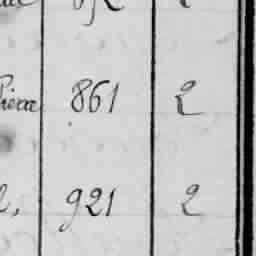 Pierre 861 2
921 2